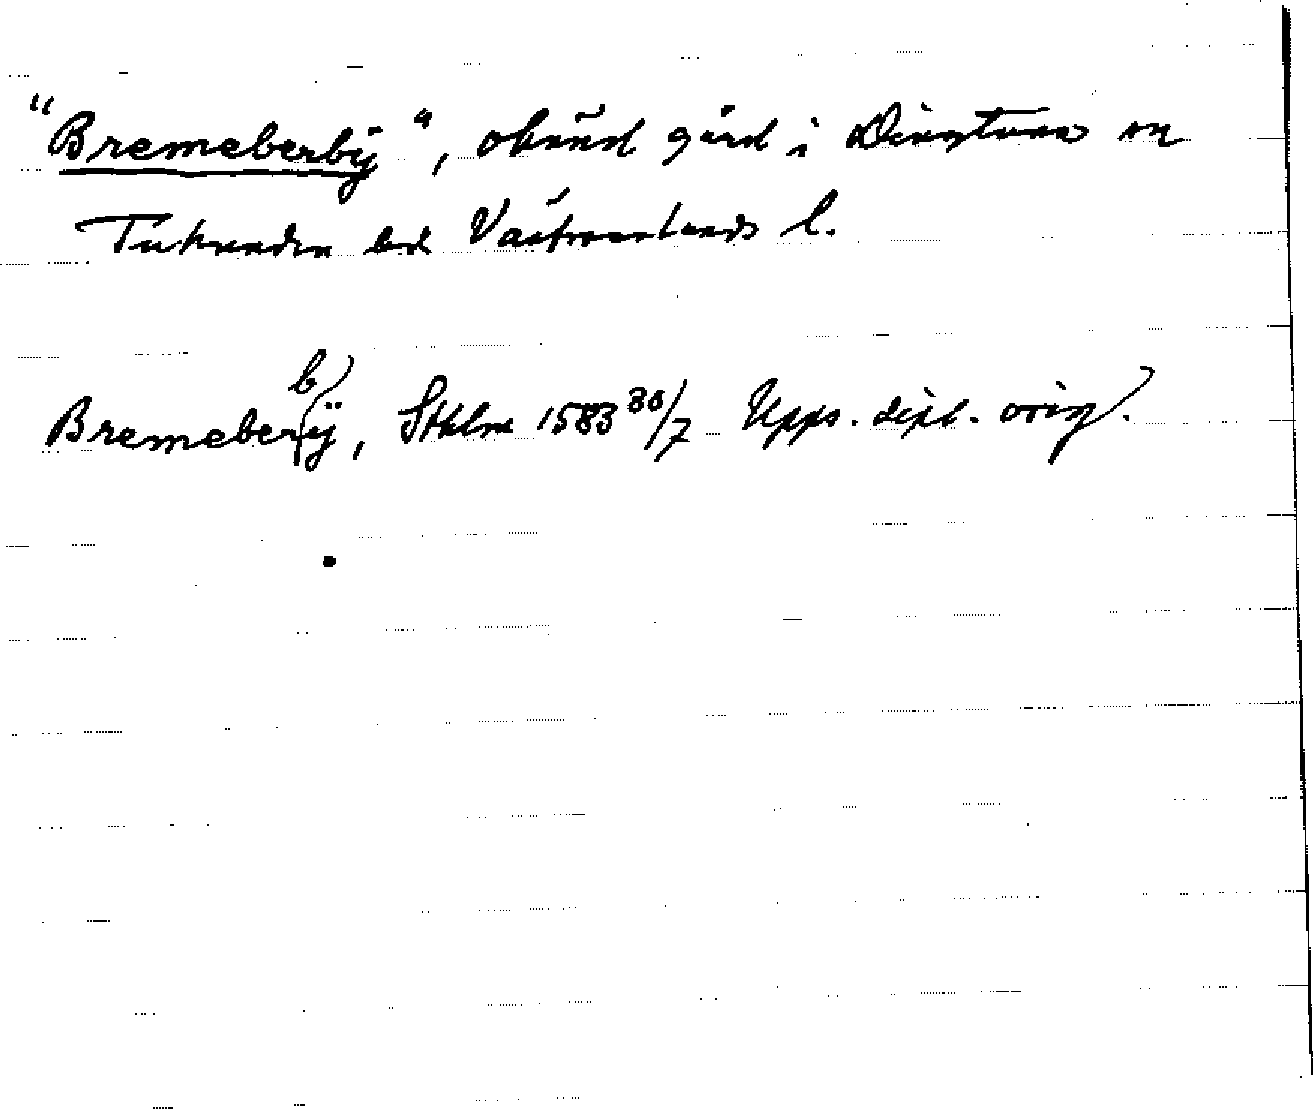 "Bremeberbÿ", okänd gård i Dingtuna sn
Tuhundra hd Västmanlands l.
Bremeberbÿ, Sthlm 1583 30/7 Upps. dipl. orig.